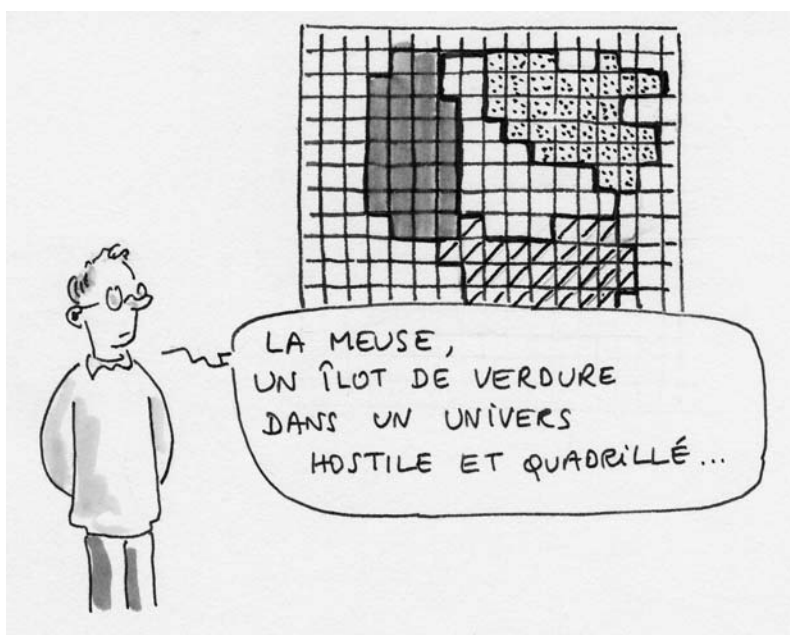 LA MEUSE,
UN ÎLOT DE VERDURE
DANS UN UNIVERS
HOSTILE ET QUADRILLÉ...